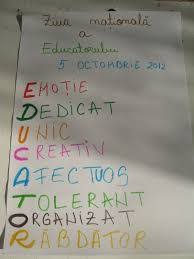 Ziua națională
a
Educatorului
5 OCTOMBRIE 2012
EMOȚIE
DEDICAT
UNIC
CREATIV
AFECTUOS
TOLERANT
ORGANIZAT
RĂBDĂTOR